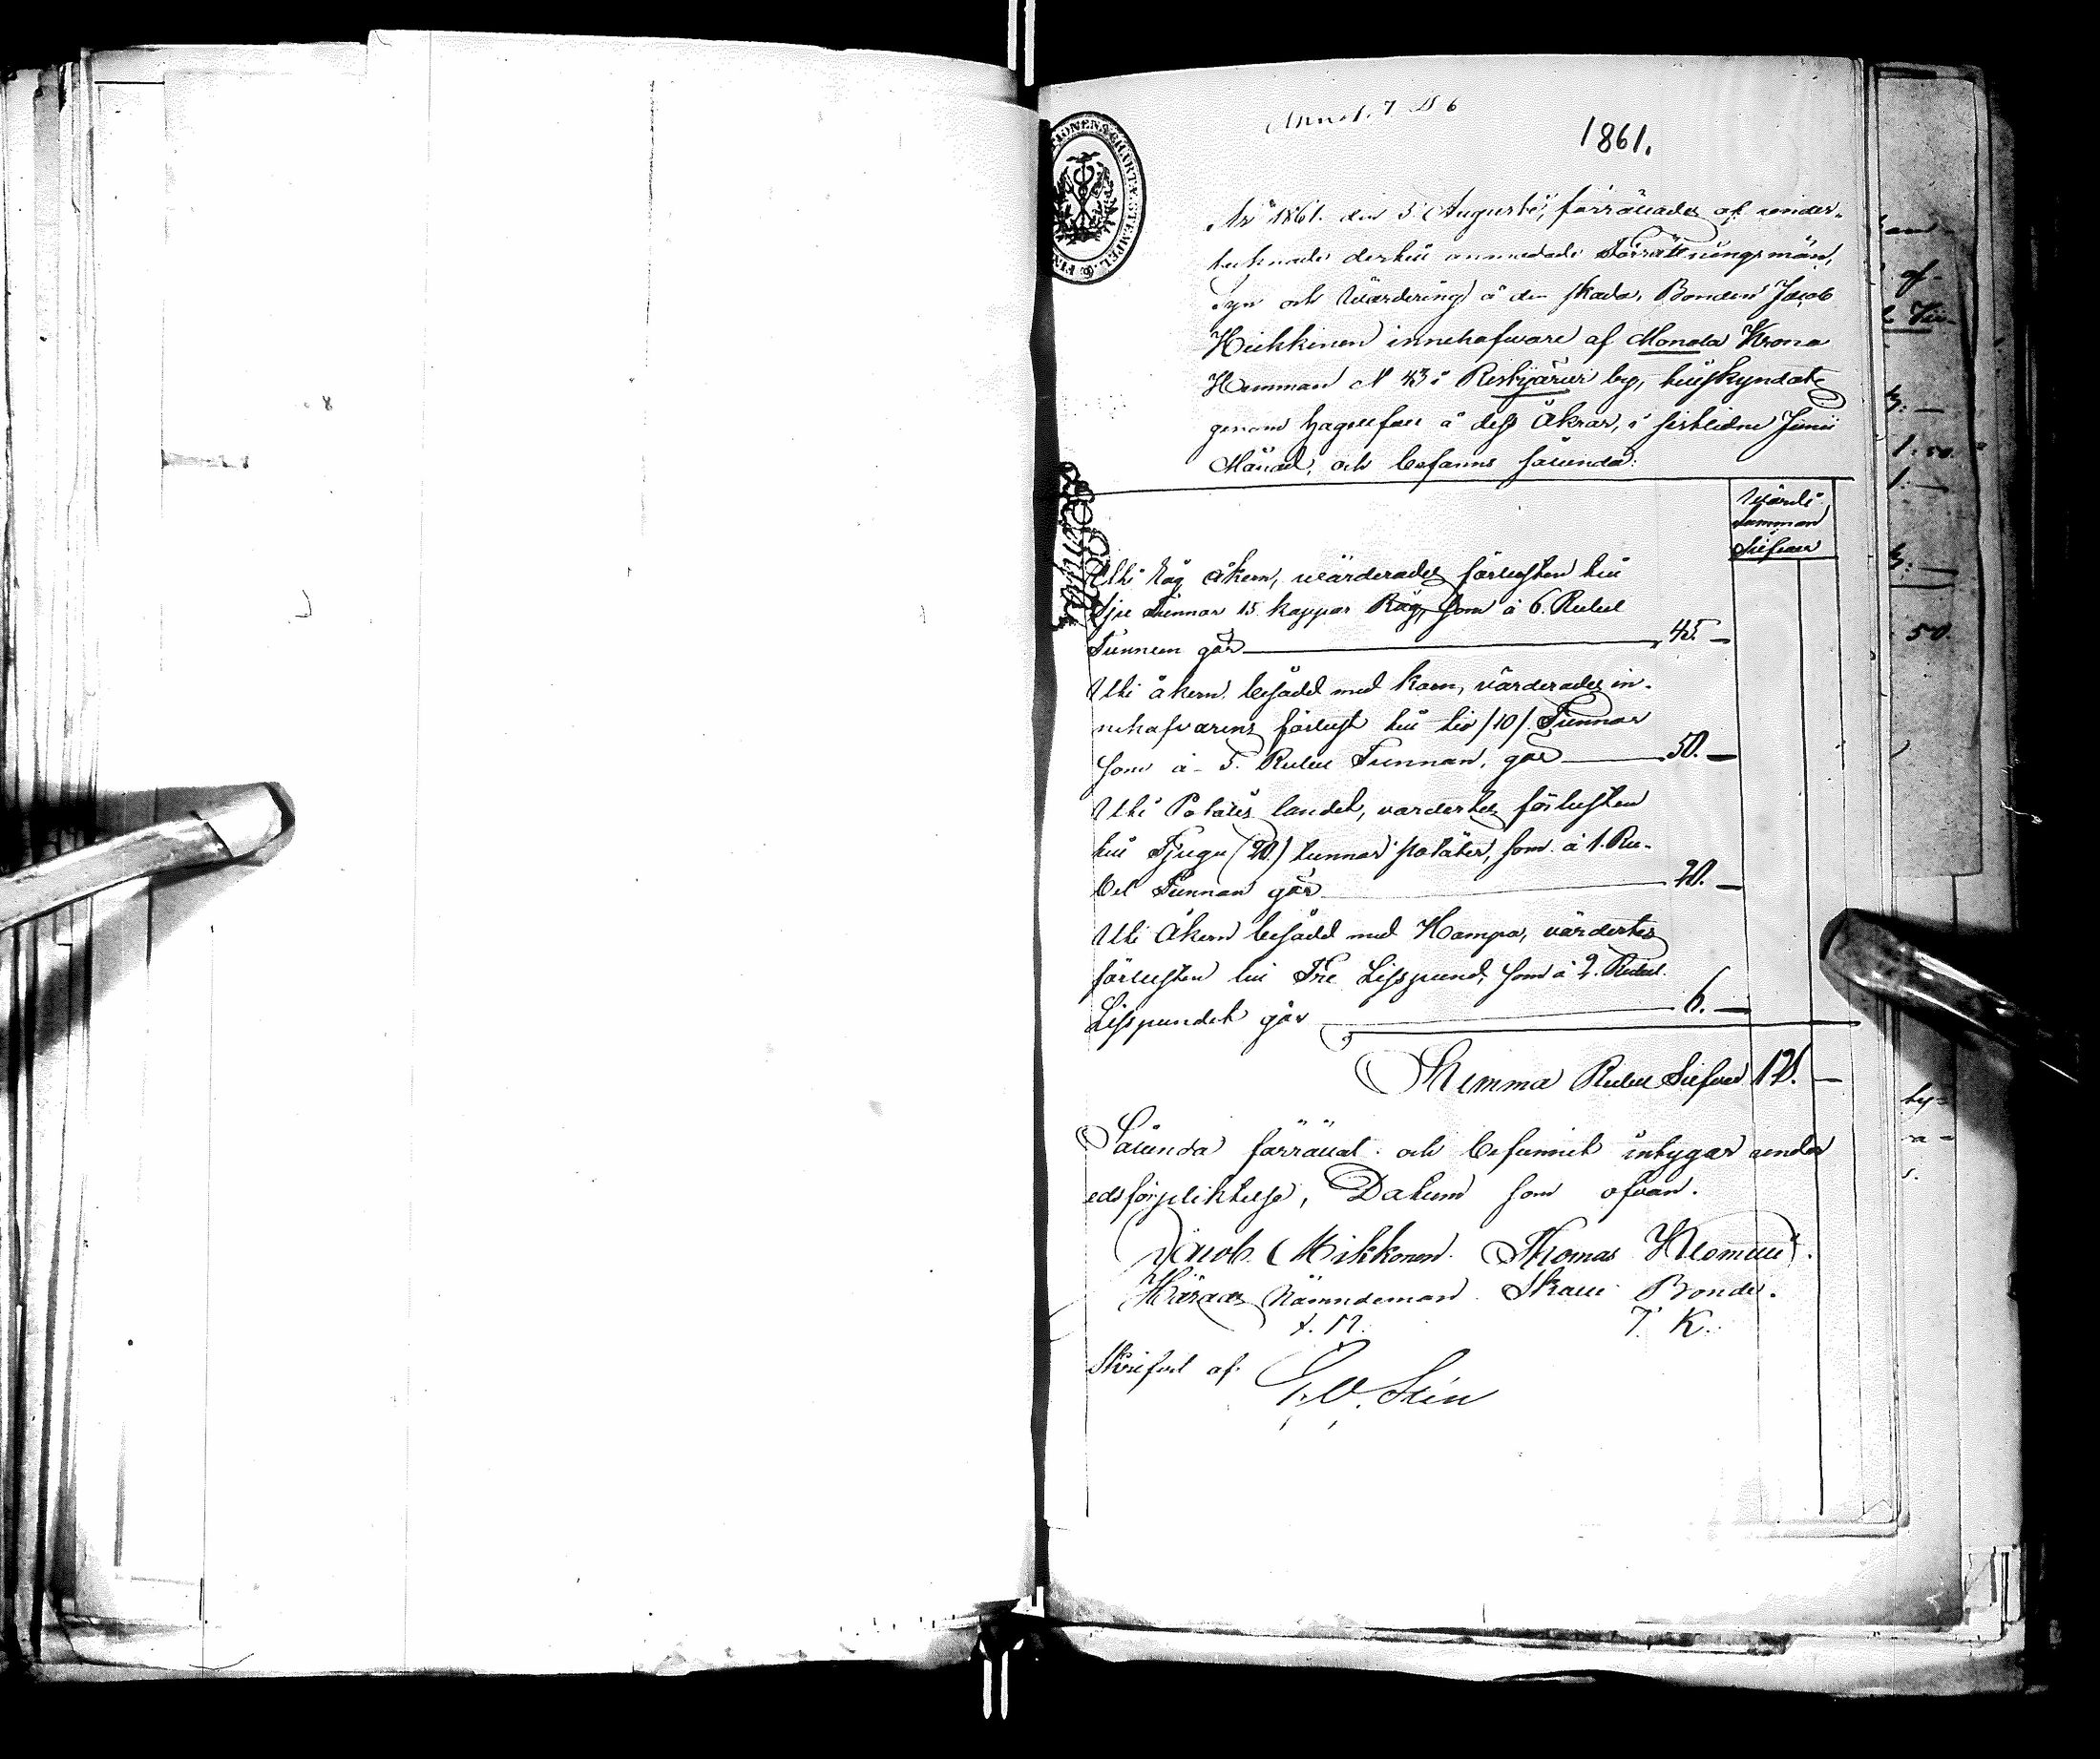 Annot. 7 № 6
1861.
År 1861. den 5 Augusti, förrättades af under-
tecknade dertill anmodade Förrättningsmän,
Syn och Wärdering å den skada, Bonden Jacob
Heikkinen innehafware af Monola Krono
Hemman N 43 i Reskjärwi by, tillskyndats
genom hagelfall å dess Åkrar, i sistlidne Junii
Månad, och befanns sålunda:
Wärde
summan
Silfwer
Uti Råg åkern, wärderades förlusten till
Sju Tunnor 15 kappar Råg, som à 6. Rubel
Tunnan gör 45. —
Uti åkern besådd med korn, värderades in-
nehafvarens förlust till tio /10/ Tunnor
som à 5. Rubel Tunnan, gör 50. —
Uti Potätes landet, värdertes förlusten
till Tjugu (20.) tunnor potäter, som à 1. Ru-
bel Tunnan gör 20. —
Uti Åkern besådd med Hampa, värdertes
förlusten till Tre Lisspund, som à 2. Rubel
Lisspundet gör 6. —
Summa Rubel Silfver 121. —
Sålunda förrättat och befunnit intygar under
edsförpliktelse, Datum som ofvan.
Jacob Mikkonen. Thomas Klemmi.
Härads Nämndeman Skatte Bonde.
T. K.
Skrifvet af